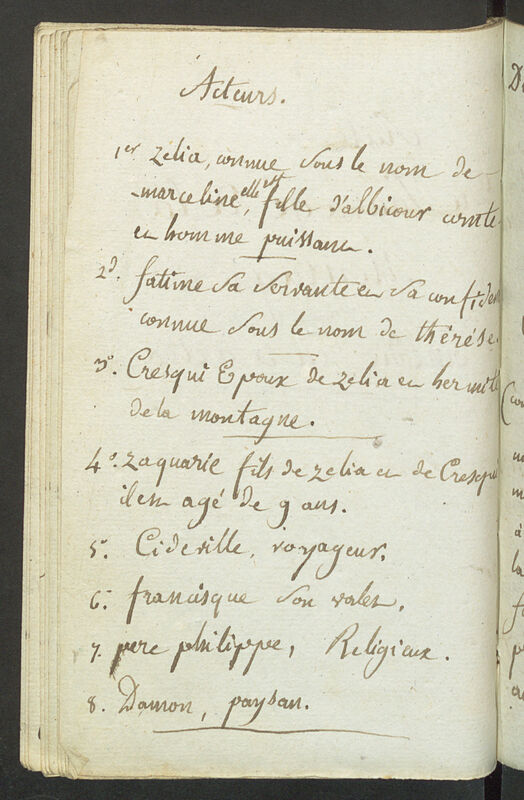 Acteurs.
1er zélia, connue sous le nom de
marceline, elle est fille d'albicour comte
et homme puissant.
2d. fatime sa servante et sa confiden
connue sous le nom de thérése.
3o. Cresqui Epoux de zelia et hermite
de la montagne.
4o. zaquarie fils de zelia et de Cresqui
il est agé de 9 ans.
5. Cideville, voyageur.
6. francisque son valet.
7. pere philippe, Religieux.
8. Damon, paysan.